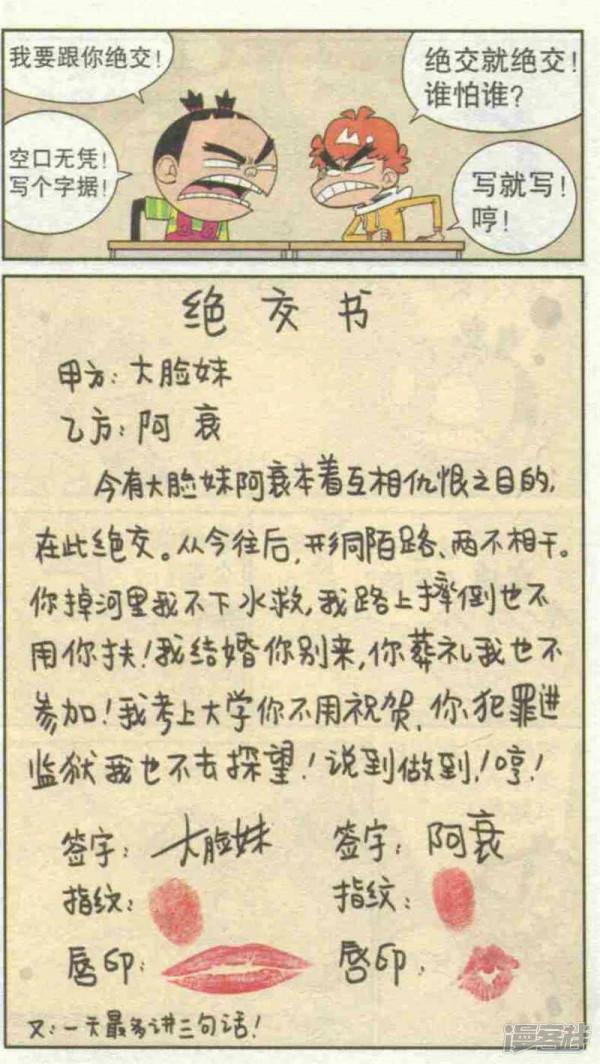 我要跟你绝交!
绝交就绝交!
谁怕谁?
空口无凭!
写个字据!
写就写!
哼!
绝交书
甲方:大脸妹
乙方:阿衰
今有大脸妹阿衰本着互相仇恨之目的,
在此绝交。从今往后,形同陌路、两不相干。
你掉河里我不下水救,我路上摔倒也不
用你扶!我结婚你别来,你葬礼我也不
参加!我考上大学你不用祝贺,你犯罪进
监狱我也不去探望!说到做到!哼!
签字:大脸妹 签字:阿衰
指纹: 指纹:
唇印: 唇印:
又:一天最多讲三句话!
漫客栈